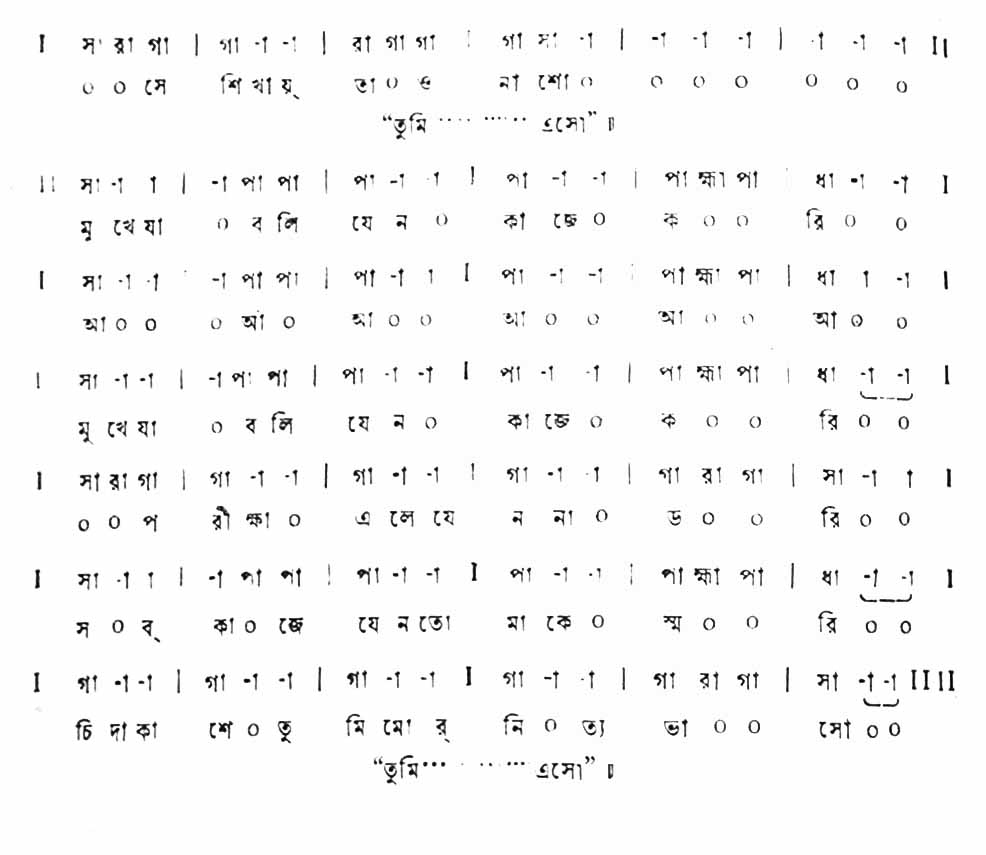 I সা রা গা | গা -া -া | রা গা গা I গা সা -া | -া -া -া | -া -া -া II
০ ০ সে শি খা য়্ তা ০ ও না শো ০ ০ ০ ০ ০ ০ ০
“তুমি ............ এসো” ॥
II সা -া া | -া পা পা | পা -া -া I পা -া -া | পা হ্মা পা | ধা -া -া I
মু খে যা ০ ব লি যে ন ০ কা জে ০ ক ০ ০ রি ০ ০
I সা -া -া | -া পা পা | পা -া া I পা -া -া | পা হ্মা পা | ধা া -া I
আ ০ ০ ০ আঁ ০ আ ০ ০ আ ০ ০ আ ০ ০ আঁ ০ ০
I সা -া -া | -া পা পা | পা -া -া I পা -া -া | পা হ্মা পা | ধা -া -া I
মু খে যা ০ ব লি যে ন ০ কা জে ০ ক ০ ০ রি ০ ০
I সা রা গা | গা -া -া | গা -া -া I গা -া -া | গা রা গা | সা -া া I
০ ০ প রী ক্ষা ০ এ লে যে ন না ০ ড ০ ০ রি ০ ০
I সা -া া | -া পা পা | পা -া -া I পা -া -া | পা হ্মা পা | ধা -া -া I
স ০ ব্ কা ০ জে যে ন তো মা কে ০ স্ম ০ ০ রি ০ ০
I গা -া -া | গা -া -া | গা -া -া I গা -া -া | গা রা গা | সা -া -া II II
চি দা কা শে ০ তু মি মো র্ নি ০ ত্য ভা ০ ০ সো ০ ০
“তুমি............ এসো” ॥